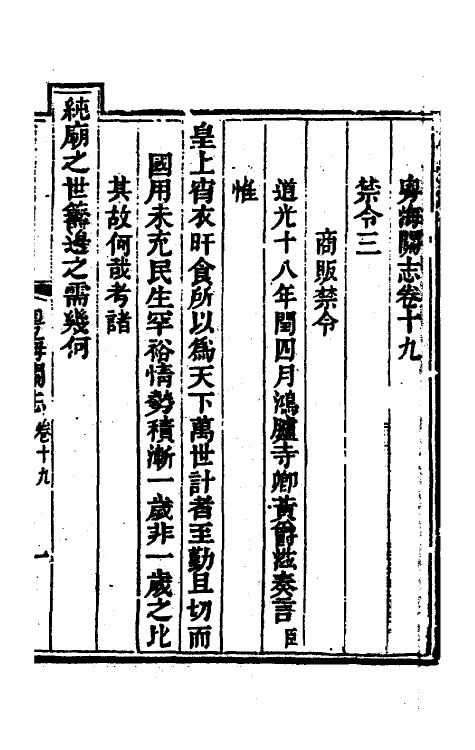 粤海關志卷十九
禁令三
商販禁令
道光十八年閏四月鴻臚寺卿黃爵滋奏言臣
惟
皇上宵衣旰食所以為天下萬世計者至勤且切而
國用未充民生罕裕情勢積漸一歲非一歲之比
其故何哉考諸
純廟之世籌邊之需幾何
粤海關志 卷十九 一